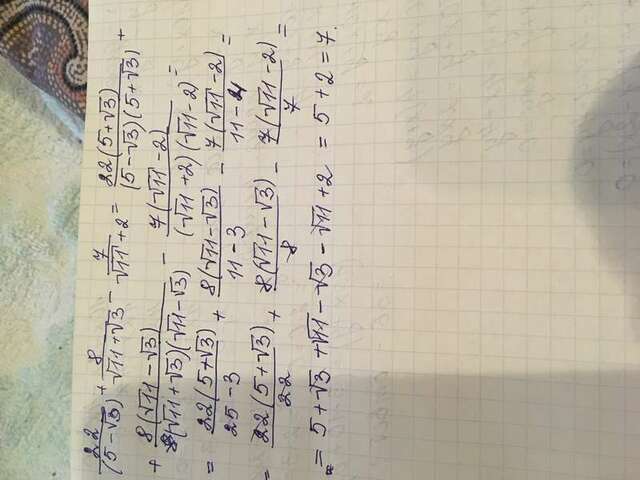 22/(5-√3) + 8/(√11+√3) - 7/(√11+2) = 22(5+√3)/((5-√3)(5+√3)) +
+ 8(√11-√3)/((√11+√3)(√11-√3)) - 7(√11-2)/((√11+2)(√11-2)) =
= 22(5+√3)/(25-3) + 8(√11-√3)/(11-3) - 7(√11-2)/(11-4) =
= 22(5+√3)/22 + 8(√11-√3)/8 - 7(√11-2)/7 =
= 5+√3+√11-√3-√11+2 = 5+2 = 7.